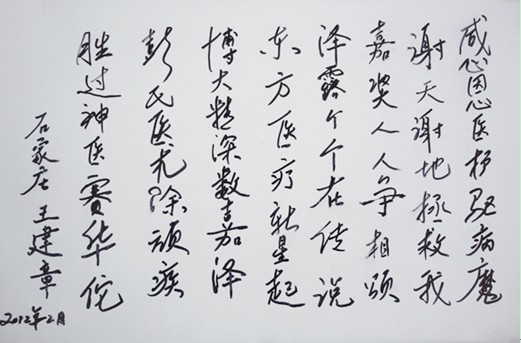 感恩医护驱病魔
谢天谢地拯救我
嘉奖人人争相颂
泽露个个在传说
东方医疗新星起
博大精深数嘉泽
彭氏医术除顽疾
胜过神医賽华佗
石家庄王建章
2012年2月